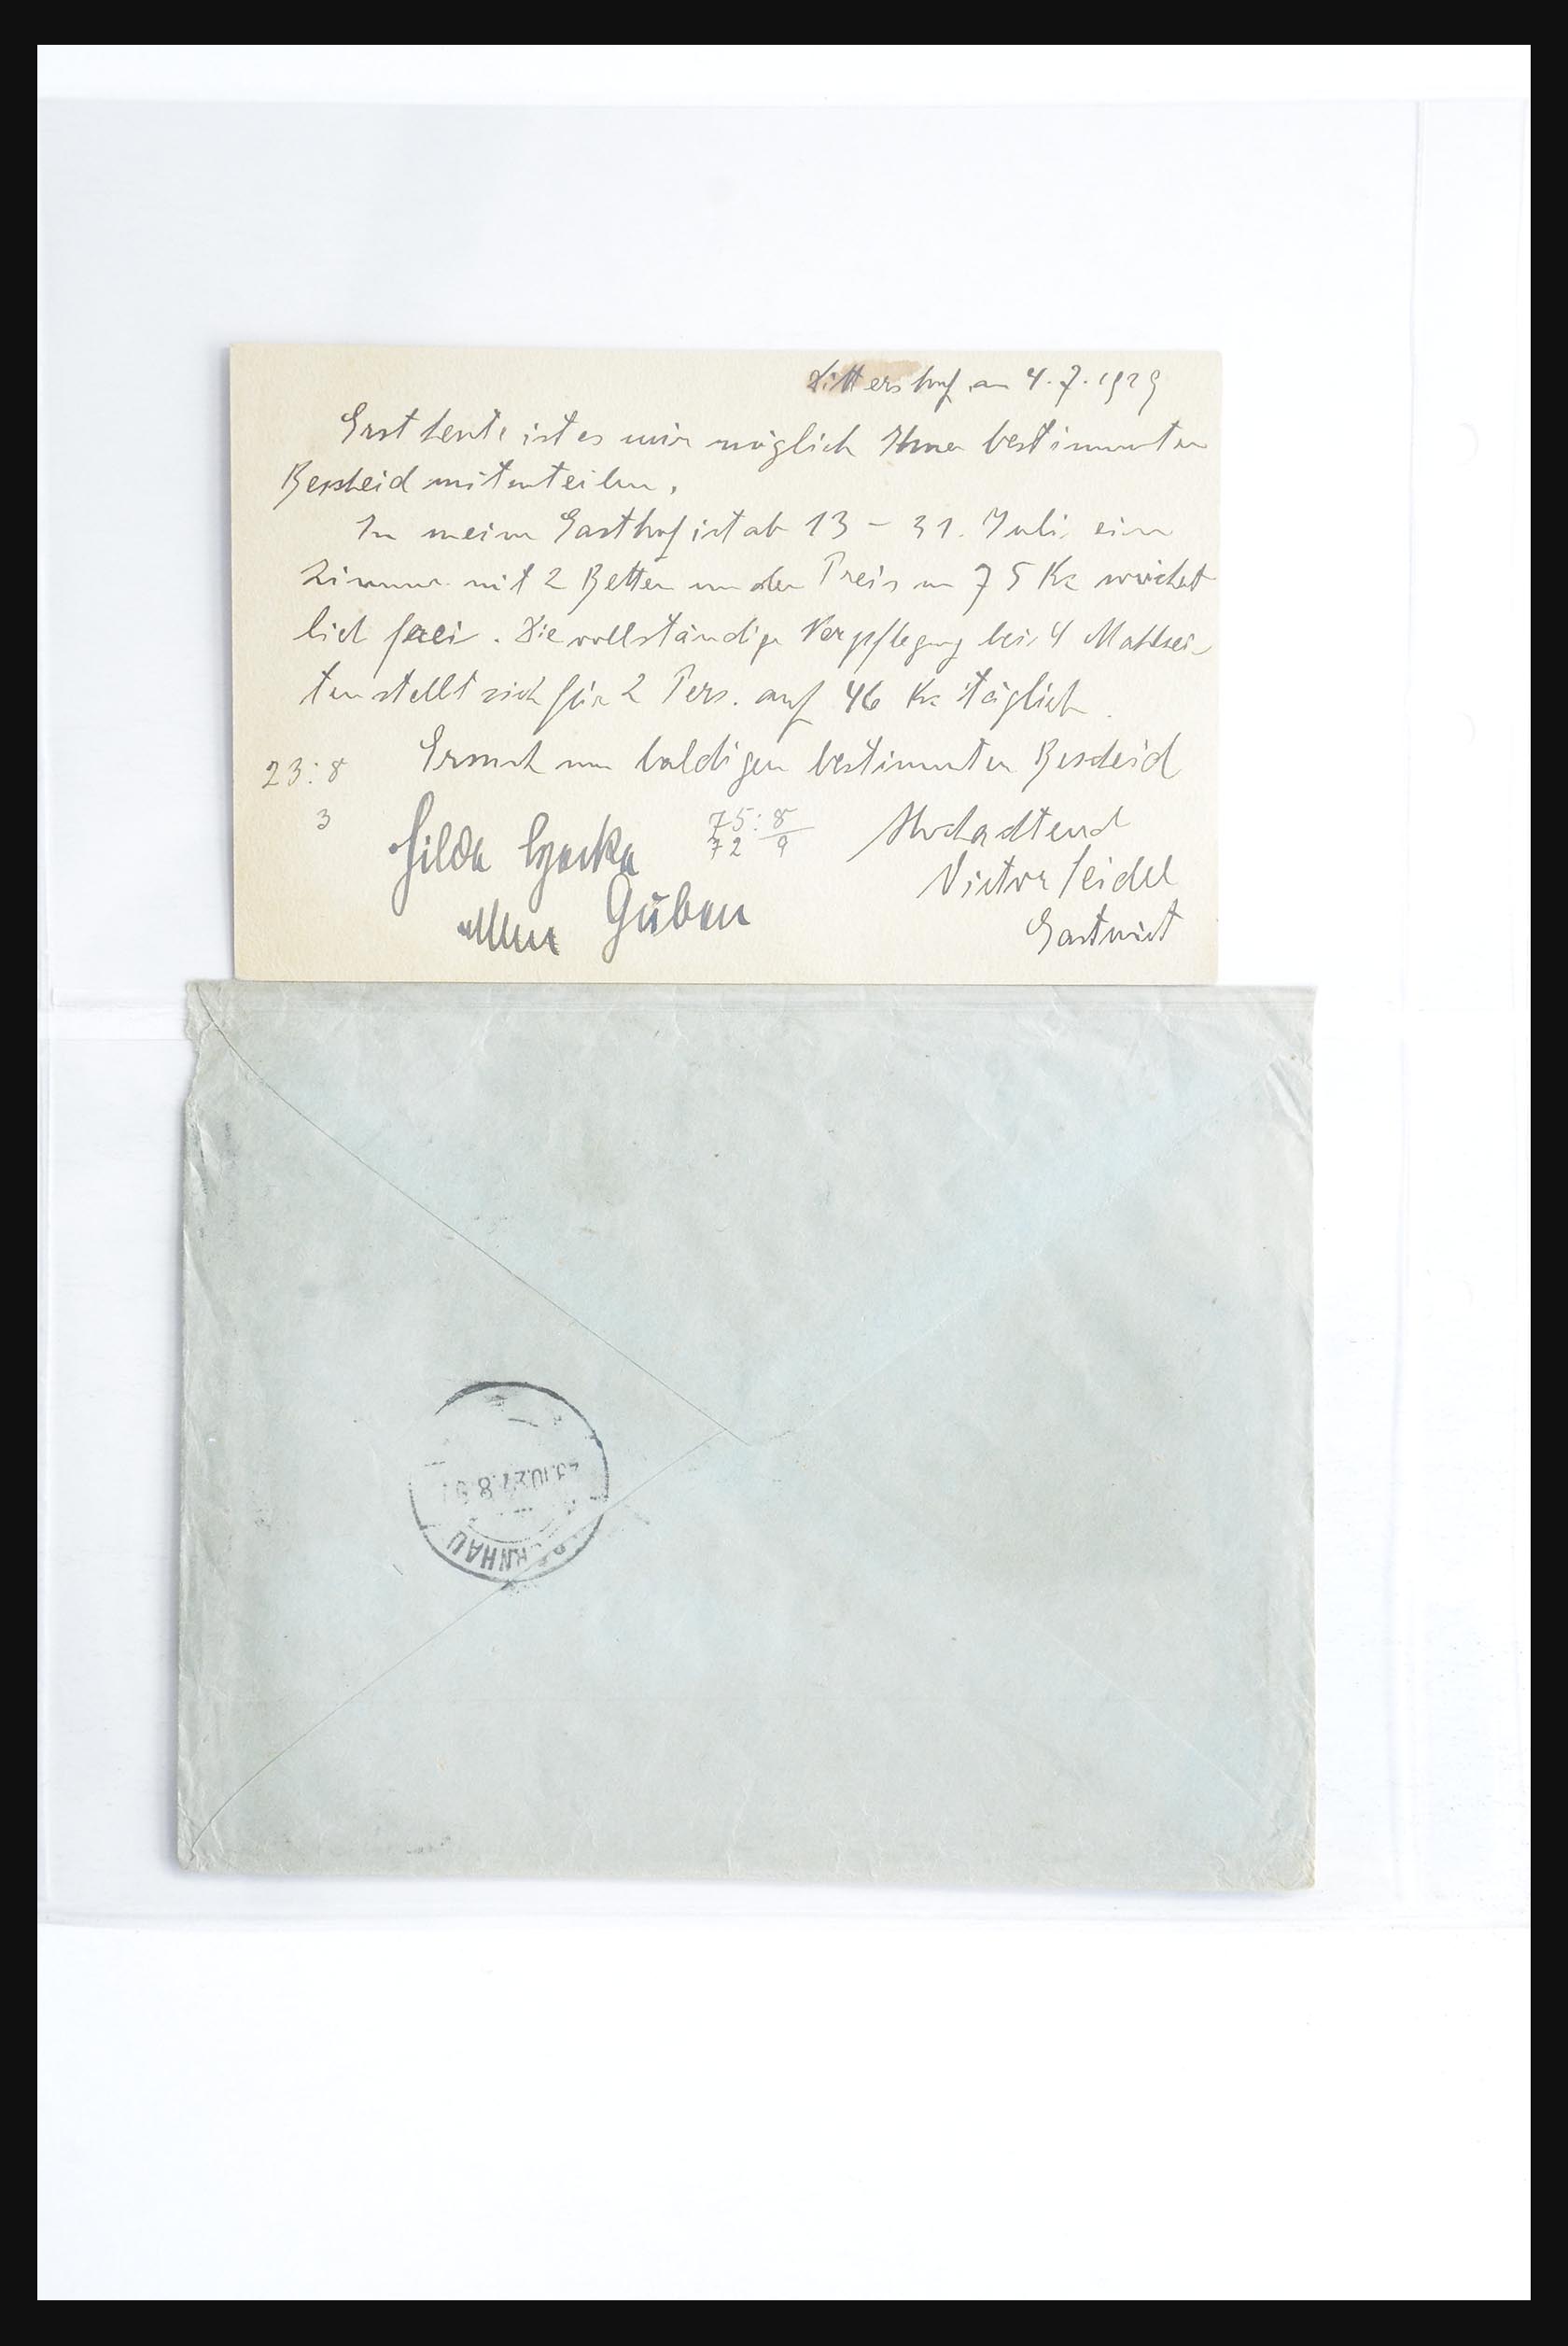 Dittershof, am 4.7.1929
Erst heute ist es mir möglich Ihnen bestimmten
Bescheid mitzuteilen.
In meinem Gasthof ist ab 13 - 31. Juli ein
Zimmer mit 2 Betten um den Preis um 75 Kc wöchent
lich frei. Die vollständige Verpflegung bei 4 Mahlzei
ten stellt sich für 2 Pers. auf 46 Kc täglich.
Ersuch um baldigen bestimmten Bescheid
23:8
3
75:8
72 9
Hochachtend
Victor Seidel
Gastwirt
Hilda
Guben
.10.27.8
RNHAU